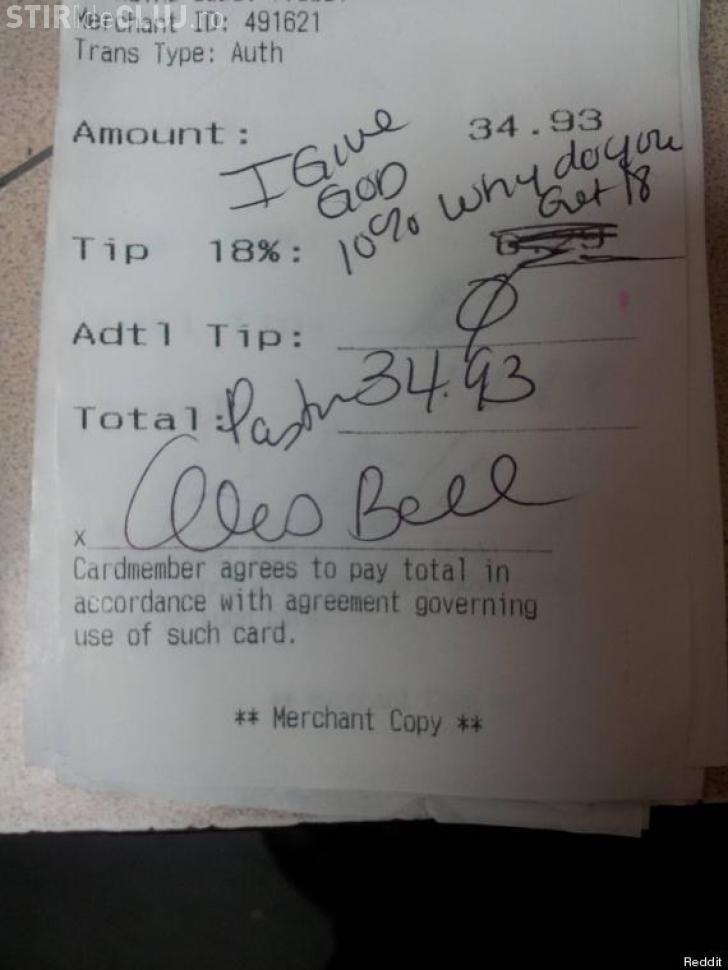 STIRIdeCLUJ.ro
Merchant ID: 491621
Trans Type: Auth
Amount: 34.93
I Give
GOD
10% Why do you
Get 18
Tip 18%:
Adtl Tip: 0
Total: Pastor 34.93
x Bell
Cardmember agrees to pay total in
accordance with agreement governing
use of such card.
** Merchant Copy **
Reddit